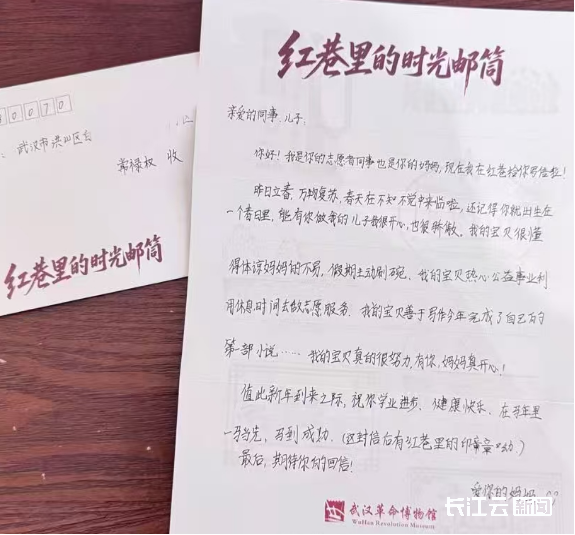 0070
武汉市洪山区
常禄权 收
红巷里的时光邮筒
红巷里的时光邮筒
亲爱的同事、儿子:
你好!我是你的志愿者同事也是你的妈妈,现在我在红巷给你写信啦!
昨日立春,万物复苏,春天在不知不觉中来临啦,还记得你就出生在
一个春日里,能有你做我的儿子我很开心,也很骄傲。我的宝贝很懂
得体谅妈妈的不易,假期主动刷碗。我的宝贝热心公益事业利
用休息时间去做志愿服务。我的宝贝善于写作今年完成了自己的
第一部小说……我的宝贝真的很努力,有你,妈妈真开心!
值此新年到来之际,祝你学业进步、健康快乐、在马年里
一马当先,马到成功。(这封信后有红巷里的印章哟)
最后,期待你的回信!
爱你的妈妈
武汉革命博物馆
WuHan Revolution Museum
长江云新闻